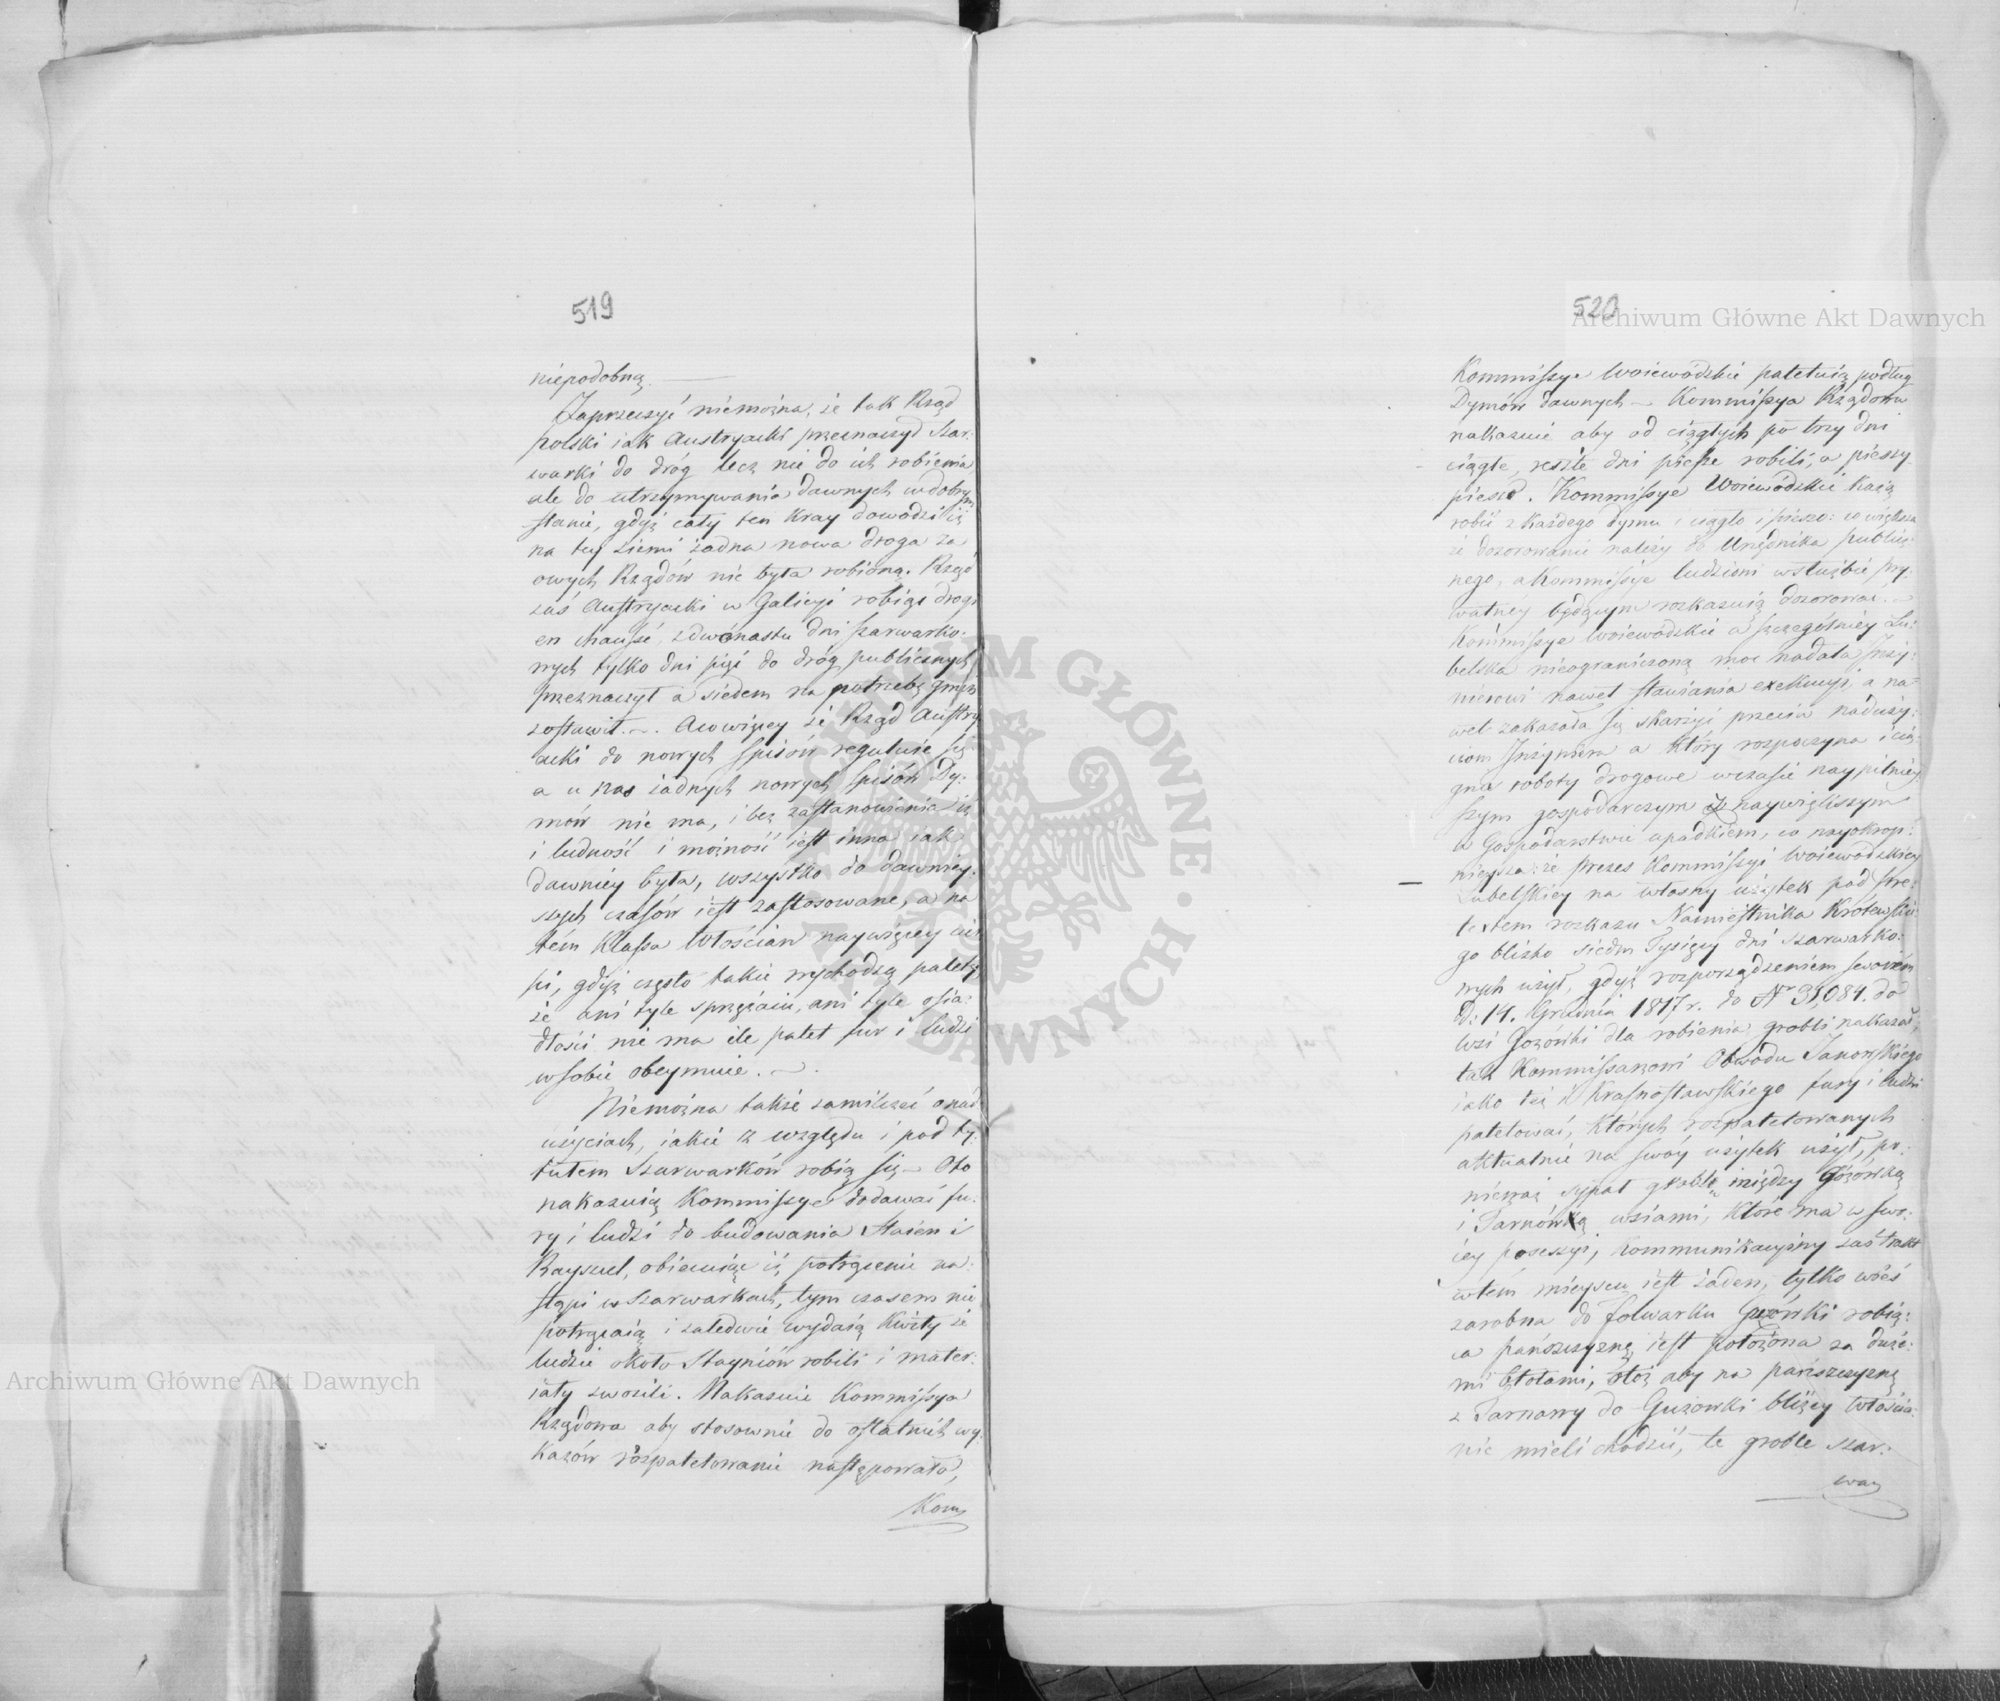 519
niepodobną. —
Zaprzeczyć niemożna, że tak Rząd
polski iak Austryacki przeznaczył Szar:
warki do dróg lecz nie do ich robienia
ale do utrzymywania dawnych w dobrym
stanie, gdyż cały ten Kray dowodzi iż
na tey ziemi żadna nowa droga za
owych Rządów nie była robioną. Rząd
zaś Austryacki w Galicyi robiąc drogi
en chaussé, z dwónastu dni szarwarko:
wych tylko dni pięć do dróg publicznych
przeznaczył a siedem na potrzebę gmin
zostawił. — Co więcey że Rząd Austry
acki do nowych spisów reguluie się
a u nas żadnych nowych spisów Dy:
mów nie ma, i bez zastanowienia iż
i ludność i możność iest inna iak
dawniey była, wszystko do dawniey:
szych czasów iest zastosowane, a na
tém Klassa Włościan naywięcey cier
pi, gdyż często takie wychodzą palety
że ani tyle sprzężaiu, ani tyle osia:
dłości nie ma ile palet fur i ludzi
w sobie obeymuie. —
Niemożna także zamilczeć o nad:
użyciach, iakie z względu i pod ty:
tułem Szarwarków robią się — Oto
nakazuią Kommissye dodawać fu:
ry i ludzi do budowania Staien i
Rayszul, obiecuiąc iż potrącenie na:
stąpi w Szarwarkach, tym czasem nie
potrącaią i zaledwie wydaią Kwity że
ludzie około Stayniów robili i mater:
iały zwozili. Nakazuie Kommissya
Rządowa aby stosownie do ostatnich wy:
kazów rozpaletowanie następowało,
Kom
520
Kommissye Woiewódzkie paletuią podług
Dymów dawnych — Kommissya Rządowa
nakazuie aby od ciągłych po trzy dni
ciągłe, resztę dni piesze robili, a pieszy
pieszo. Kommissye Woiewódzkie każą
robić z każdego dymu i ciągło i pieszo: co większa
że dozorowanie należy do Urzędnika publicz:
nego, a Kommissye ludziom w służbie pry:
watnéy będącym rozkazuią dozorować. —
Kommissye Woiewódzkie a szczególniéy Lu:
belska nieograniczoną moc nadała Inży:
nierowi nawet stawiania exekucyi, a na:
wet zakazała się skarżyć przeciw naduży:
ciom Inżyniera a który rozpoczyna i cią:
gnie roboty drogowe w czasie naypilniey:
szym gospodarczym z naywiększym
w Gospodarstwie upadkiem, co nayokrop:
nieysza: że Prezes Kommissyi Woiewódzkiey
Lubelskiey na własny użytek pod pre:
textem rozkazu Namiestnika Królewskie:
go blisko siedm Tysięcy dni szarwarko:
wych użył, gdyż rozporządzeniem swoiém
d: 14. Grudnia 1817 r. do Nr 31,084. do
wsi Gozówki dla robienia grobli nakazał
tak Kommissarzowi Obwodu Janowskiego
iako też i Krasnostawskiego fury i ludzi
paletować, których rozpaletowanych
aktualnie na swóy użytek użył, po:
nieważ sypał groblę między Gózówką
i Tarnówką wsiami, które ma w swo:
iey possessyi, Kommunikacyiny zaś trakt
w tem mieyscu iest żaden, tylko wieś
zarobna do folwarku Guzówki robią:
ca pańszczyznę iest położona za duże:
mi błotami, otóż aby na pańszczyznę
z Tarnawy do Guzowki bliżey włościa:
nie mieli chodzić, te groble szar:
war
Archiwum Główne Akt Dawnych
Archiwum Główne Akt Dawnych
ARCHIWUM GŁÓWNE • AKT DAWNYCH •